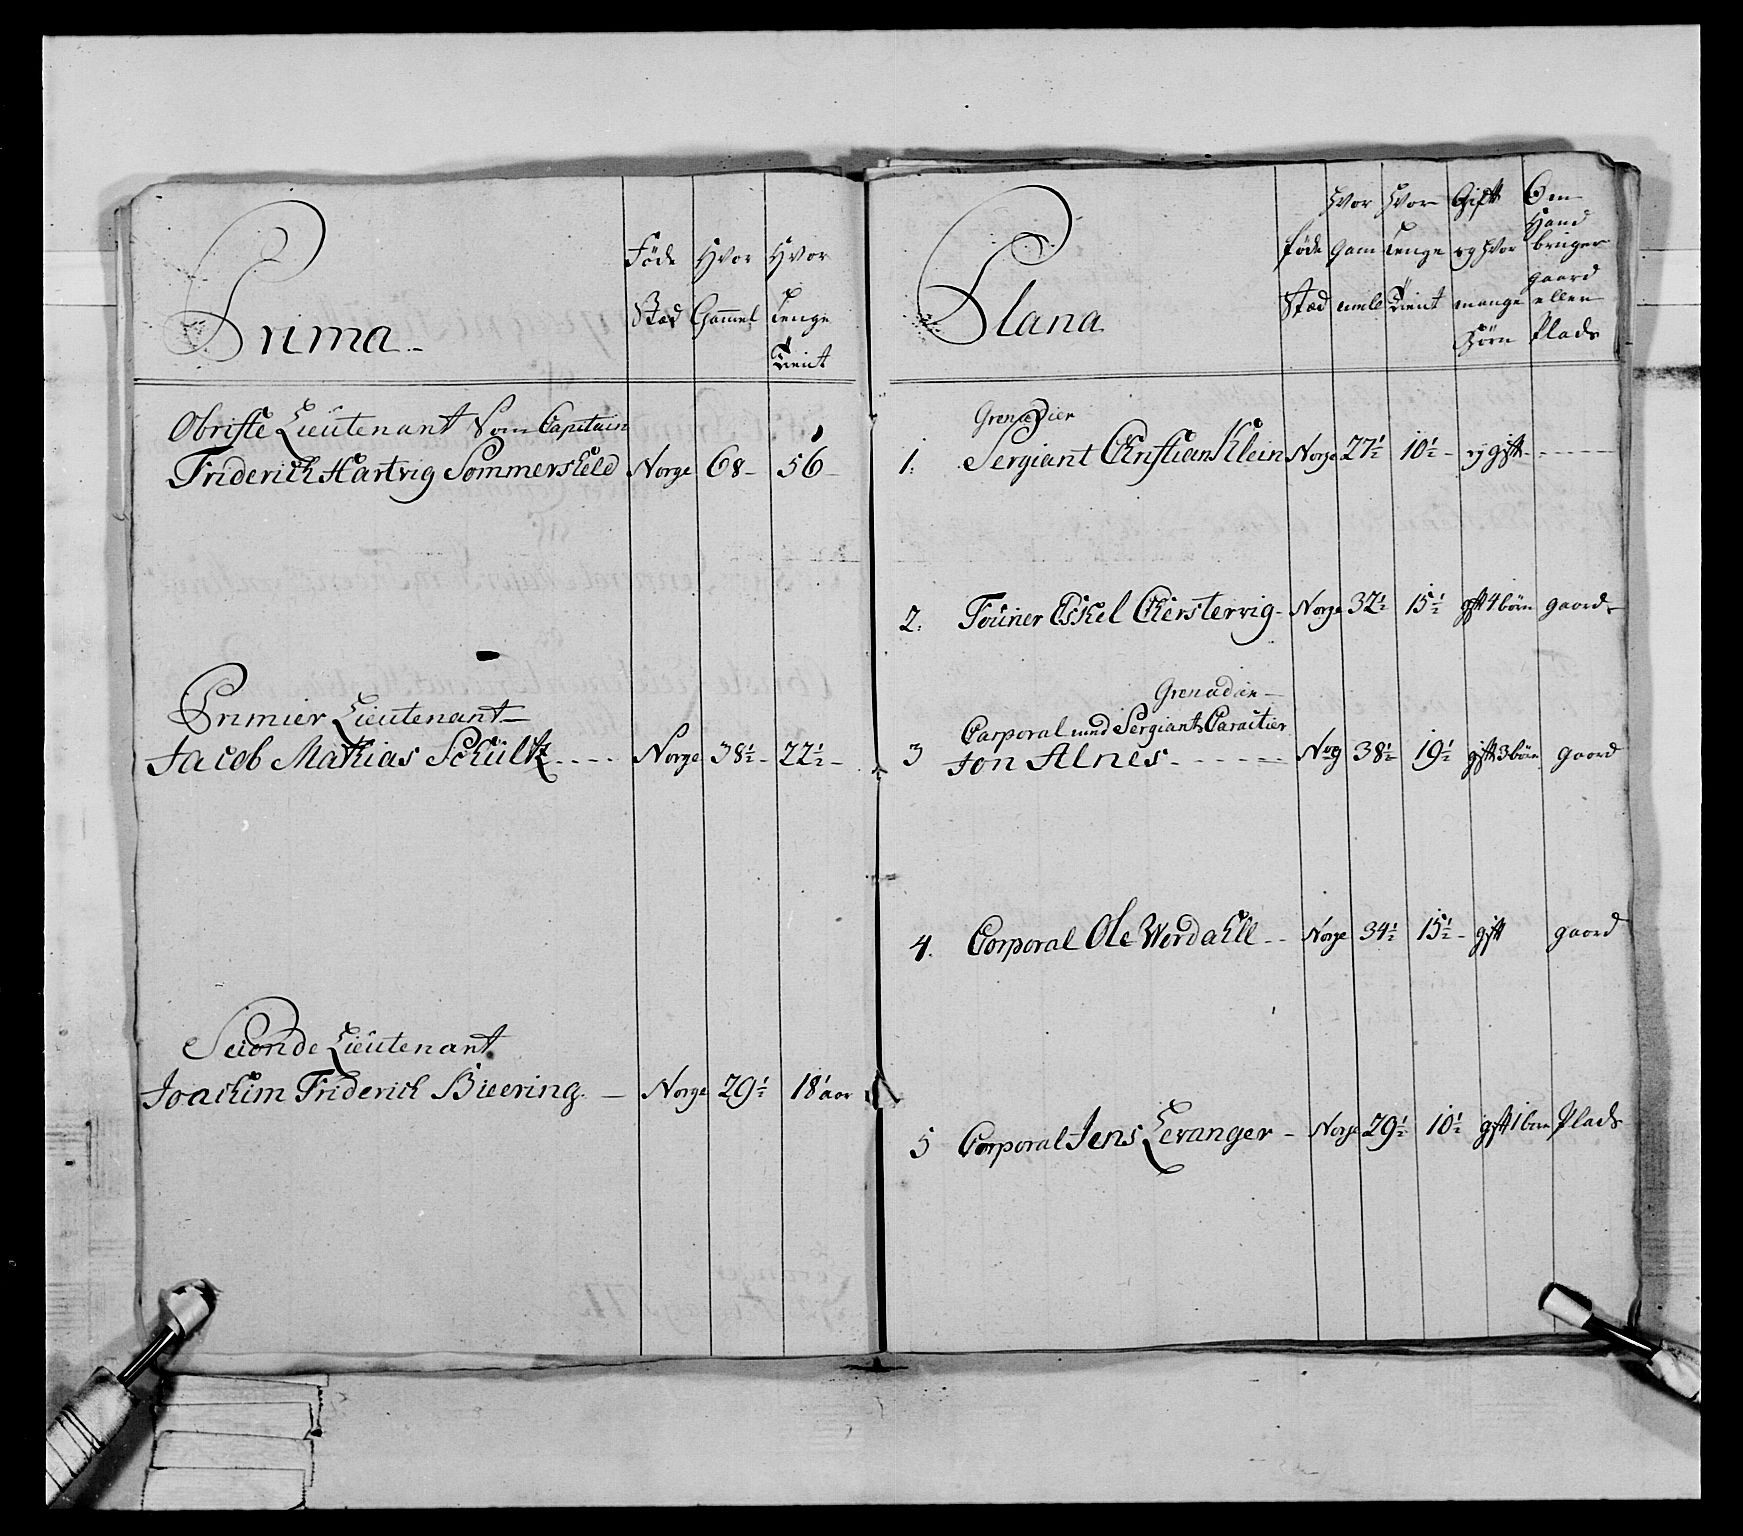 Prima
Föde Stæd
Hvor Gamel
Hvor Lenge Tient
Obriste Lieutenant Som Capitain
Friderich Hartvig Sommerscheld Norge 68 56
Premier Lieutenant
Jacob Mathias Schültz Norge 38½ 22½
Seconde Lieutenant
Joachim Friderich Bieering Norge 29½ 18½ aar
Plana
föde Stæd
Hvor Gammel
Hvor Lenge Tient
Gift og Hvor mange Börn
Om Hand bruger gaard eller Plads
Grenadier
1. Sergiant Christian Klein Norge 27½ 10½ ej gift
2. Fourier Eskel Cherstervig Norge 32½ 15½ gift 4 börn gaard
Grenadier
Corporal med Sergiants Caractier
3 Jon Alnes Norg 38½ 19½ gift 3 börn gaard
4. Corporal Ole Werdahll Norge 34½ 15½ gift gaard
5 Corporal Jens Levanger Norge 29½ 10½ gift 1 barn Plads